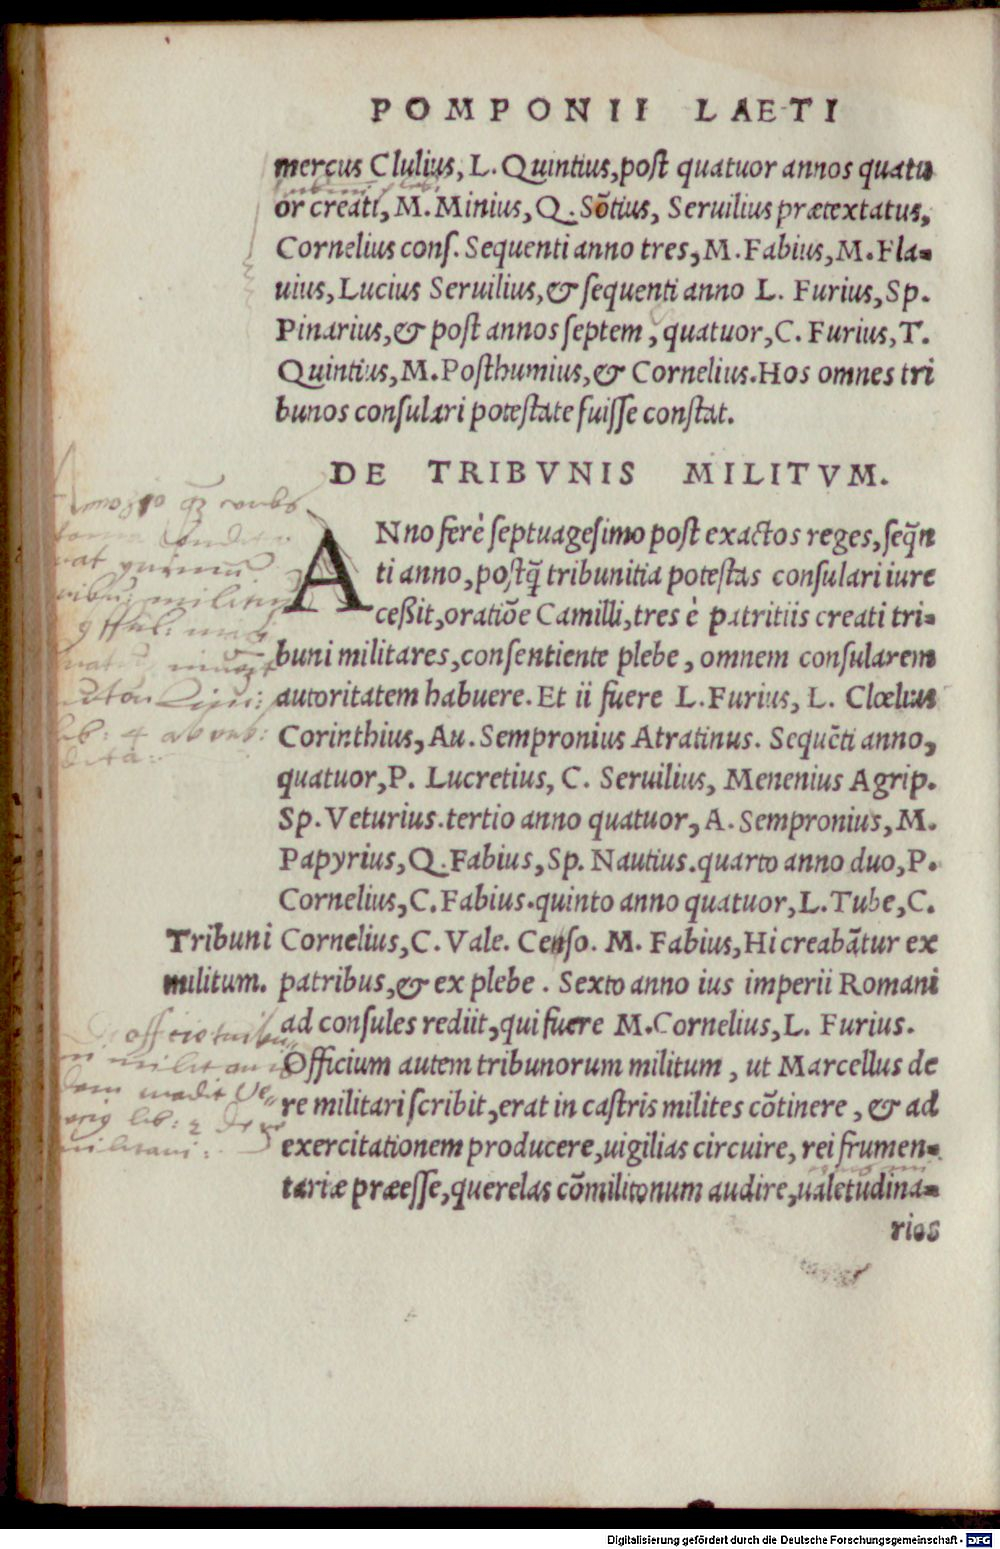 POMPONII LAETI
mercus Clulius, L. Quintius, post quatuor annos quatu
or creati, M. Minius, Q. Sõtius, Seruilius prætextatus,
Cornelius cons. Sequenti anno tres, M. Fabius, M. Fla-
uius, Lucius Seruilius, & sequenti anno L. Furius, Sp.
Pinarius, & post annos septem, quatuor, C. Furius, T.
Quintius, M. Posthumius, & Cornelius. Hos omnes tri
bunos consulari potestate fuisse constat.
DE TRIBVNIS MILITVM.
ANno ferè septuagesimo post exactos reges, seq̃n
ti anno, postq̃ tribunitia potestas consulari iure
ceßit, oratiõe Camilli, tres è patritiis creati tri-
buni militares, consentiente plebe, omnem consularem
autoritatem habuere. Et ii fuere L. Furius, L. Clœlius
Corinthius, Au. Sempronius Atratinus. Sequẽti anno,
quatuor, P. Lucretius, C. Seruilius, Menenius Agrip.
Sp. Veturius. tertio anno quatuor, A. Sempronius, M.
Papyrius, Q. Fabius, Sp. Nautius. quarto anno duo, P.
Cornelius, C. Fabius. quinto anno quatuor, L. Tube, C.
Tribuni Cornelius, C. Vale. Censo. M. Fabius, Hi creabãtur ex
militum. patribus, & ex plebe. Sexto anno ius imperii Romani
ad consules rediit, qui fuere M. Cornelius, L. Furius.
Officium autem tribunorum militum, ut Marcellus de
re militari scribit, erat in castris milites cõtinere, & ad
exercitationem producere, uigilias circuire, rei frumen-
tariæ præesse, querelas cõmilitonum audire, ualetudina-
rios
Digitalisierung gefördert durch die Deutsche Forschungsgemeinschaft - DFG